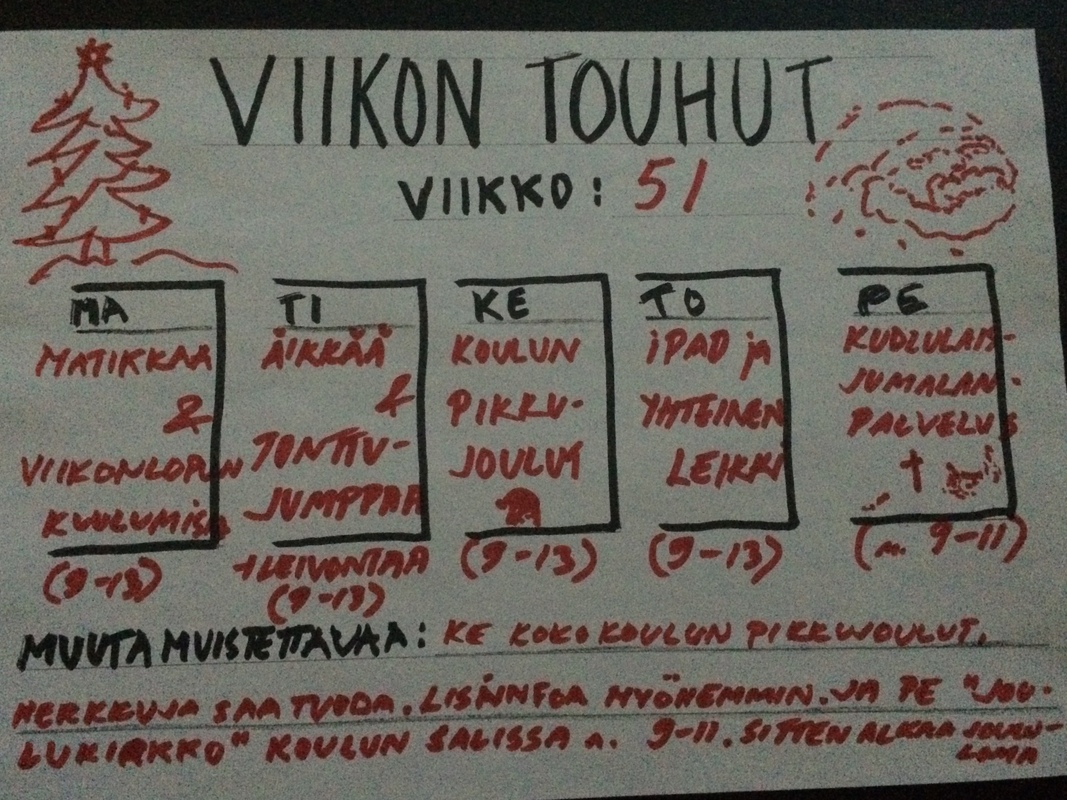 VIIKON TOUHUT
VIIKKO: 51
MA
MATIKKAA
&
VIIKONLOPUN
KUULUMISIA
(9-13)
TI
ÄIKKÄÄ
&
TONTTU-
JUMPPAA
+LEIVONTAA
(9-13)
KE
KOULUN
PIKKU-
JOULUT
(9-13)
TO
iPAD ja
YHTEINEN
LEIKKI
(9-13)
PE
KOULULAIS-
JUMALAN-
PALVELUS
(n. 9-11)
MUUTA MUISTETTAVAA: KE KOKO KOULUN PIKKUJOULUT,
HERKKUJA SAA TUODA. LISÄINFOA MYÖHEMMIN. JA PE "JOU-
LUKIRKKO" KOULUN SALISSA n. 9-11. SITTEN ALKAA JOULU-
LOMA